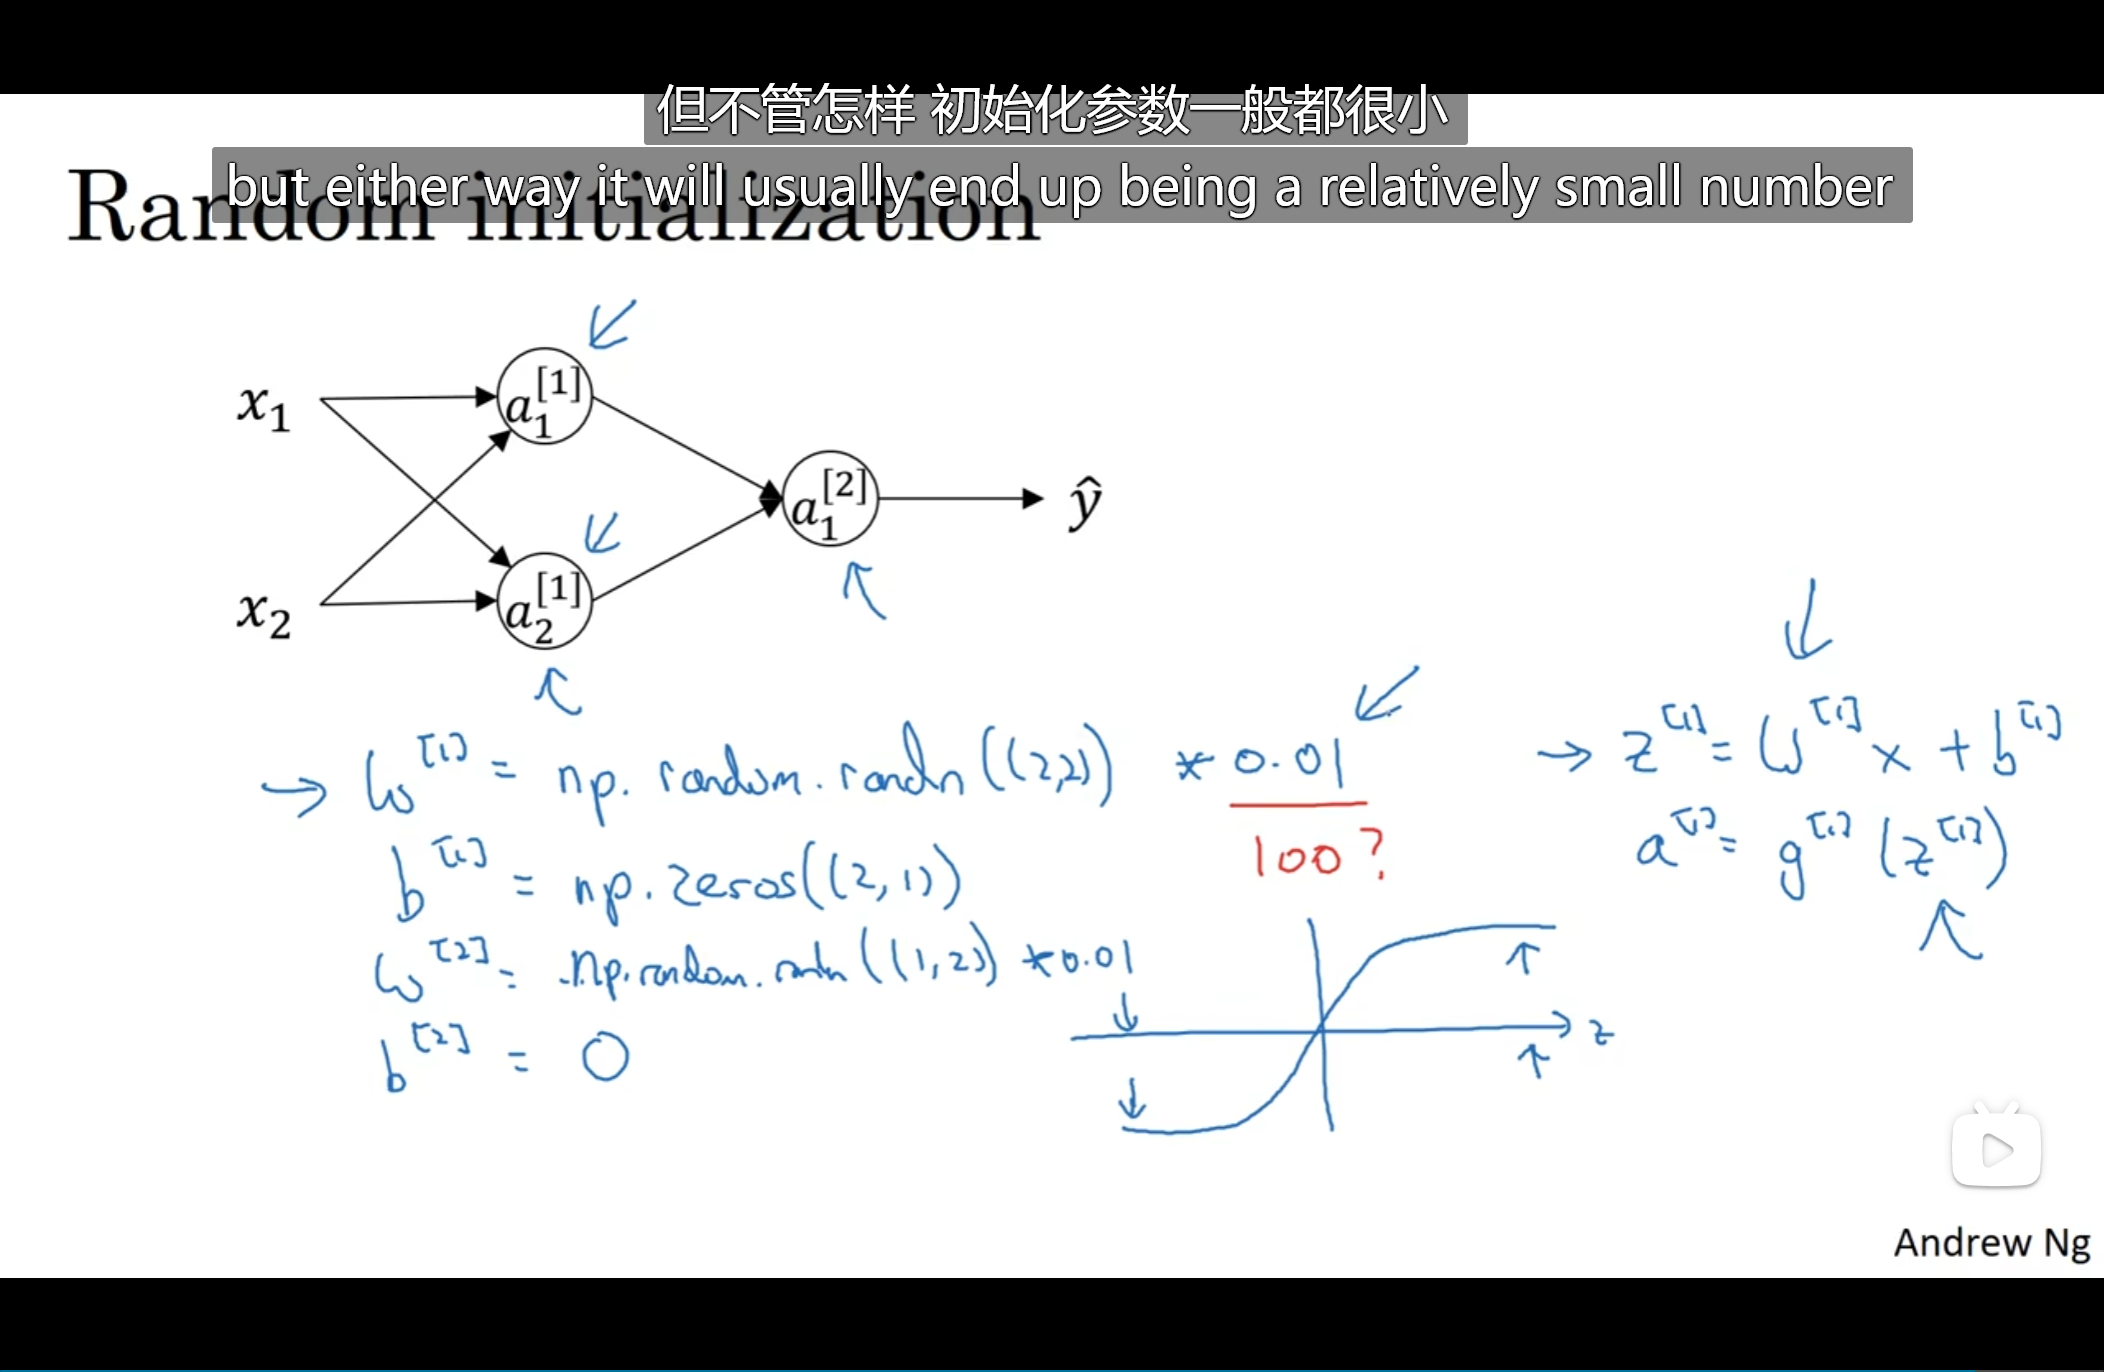 但不管怎样 初始化参数一般都很小
but either way it will usually end up being a relatively small number
Random initialization
x₁
a₁^[1]
x₂
a₂^[1]
a₁^[2]
ŷ
→ W^[1] = np.random.randn((2,2)) * 0.01
100?
b^[1] = np.zeros((2,1))
W^[2] = np.random.randn((1,2)) * 0.01
b^[2] = 0
→ z^[1] = W^[1] x + b^[1]
a^[1] = g^[1] (z^[1])
z
Andrew Ng